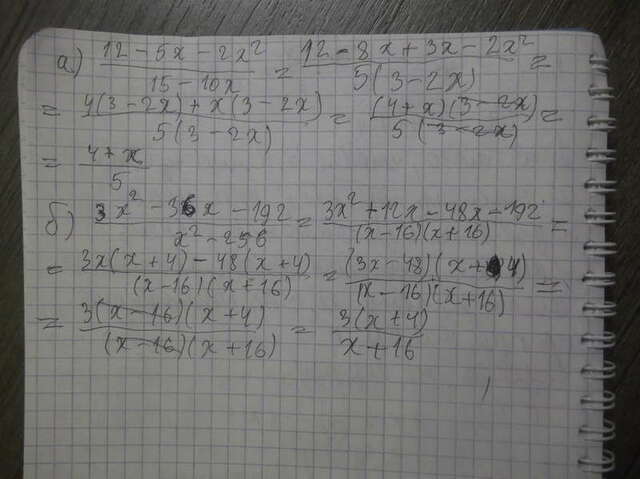 а) (12 - 5x - 2x²)/(15 - 10x) = (12 - 8x + 3x - 2x²)/(5(3 - 2x)) =
= (4(3 - 2x) + x(3 - 2x))/(5(3 - 2x)) = ((4 + x)(3 - 2x))/(5(3 - 2x)) =
= (4 + x)/5
б) (3x² - 36x - 192)/(x² - 256) = (3x² + 12x - 48x - 192)/((x - 16)(x + 16)) =
= (3x(x + 4) - 48(x + 4))/((x - 16)(x + 16)) = ((3x - 48)(x + 4))/((x - 16)(x + 16)) =
= (3(x - 16)(x + 4))/((x - 16)(x + 16)) = (3(x + 4))/(x + 16)